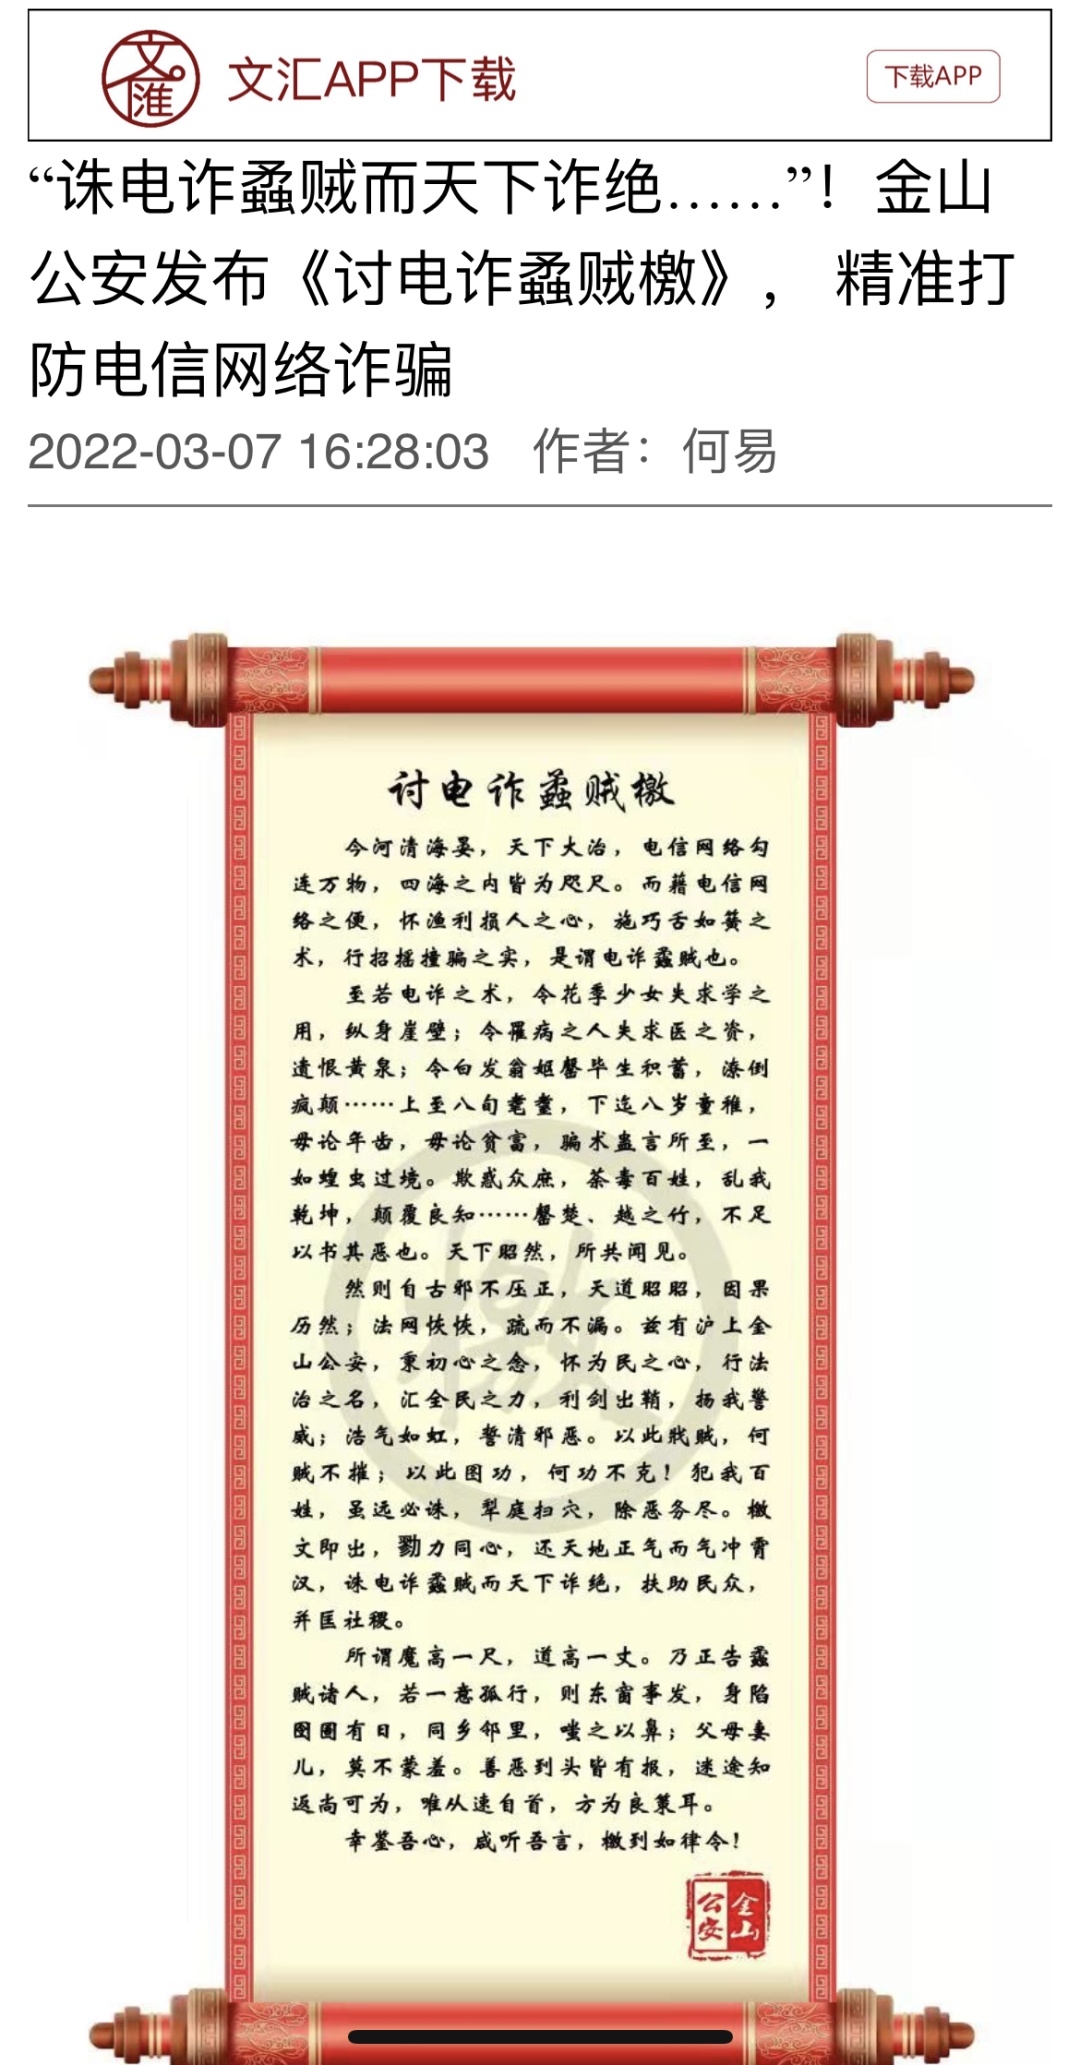 文汇
文汇APP下载
下载APP
“诛电诈蟊贼而天下诈绝……”！金山
公安发布《讨电诈蟊贼檄》， 精准打
防电信网络诈骗
2022-03-07 16:28:03 作者：何易
讨电诈蟊贼檄
今河清海晏，天下大治，电信网络勾
连万物，四海之内皆为咫尺。而藉电信网
络之便，怀渔利损人之心，施巧舌如簧之
术，行招摇撞骗之实，是谓电诈蟊贼也。
至若电诈之术，令花季少女失求学之
用，纵身崖壁；令罹病之人失求医之资，
遗恨黄泉；令白发翁妪罄毕生积蓄，潦倒
疯颠……上至八旬耄耋，下迄八岁童稚，
毋论年齿，毋论贫富，骗术蛊言所至，一
如蝗虫过境。欺惑众庶，荼毒百姓，乱我
乾坤，颠覆良知……罄楚、越之竹，不足
以书其恶也。天下昭然，所共闻见。
然则自古邪不压正，天道昭昭，因果
历然；法网恢恢，疏而不漏。兹有沪上金
山公安，秉初心之念，怀为民之心，行法
治之名，汇全民之力，利剑出鞘，扬我警
威；浩气如虹，誓清邪恶。以此戕贼，何
贼不摧；以此图功，何功不克！犯我百
姓，虽远必诛，犁庭扫穴，除恶务尽。檄
文即出，勠力同心，还天地正气而气冲霄
汉，诛电诈蟊贼而天下诈绝，扶助民众，
并匡社稷。
所谓魔高一尺，道高一丈。乃正告蟊
贼诸人，若一意孤行，则东窗事发，身陷
囹圄有日，同乡邻里，嗤之以鼻；父母妻
儿，莫不蒙羞。善恶到头皆有报，迷途知
返尚可为，唯从速自首，方为良策耳。
幸鉴吾心，咸听吾言，檄到如律令！
金山
公安
檄